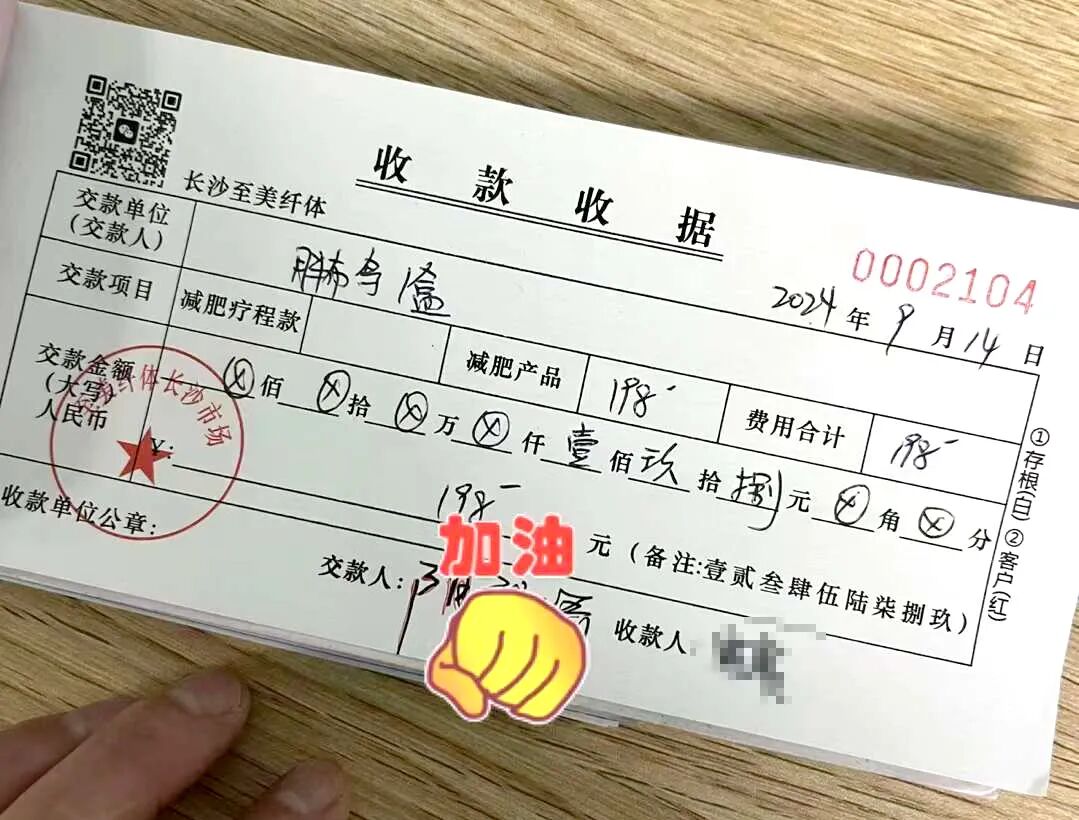 收款收据
长沙至美纤体
0002104
2024年9月14日
交款单位
(交款人)
交款项目 减肥疗程款 减肥产品 198- 费用合计 198-
交款金额
(大写)
人民币
ⓧ佰ⓧ拾ⓧ万ⓧ仟壹佰玖拾捌元ⓧ角ⓧ分
¥: 198- 元 (备注:壹贰叁肆伍陆柒捌玖)
纤体长沙市场
收款单位公章:
交款人:
收款人
①存根(白)②客户(红)
加油